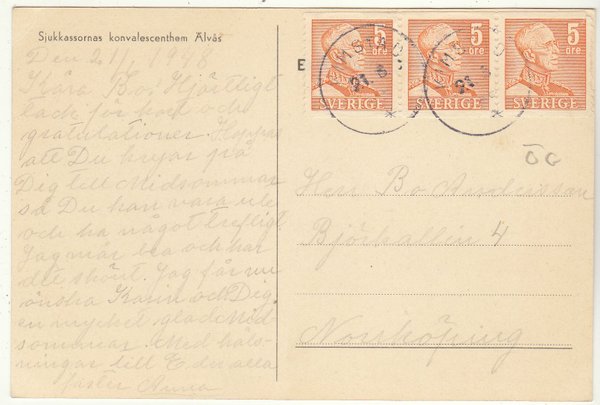 Sjukkassornas konvalescenthem Älvås
Den 21/6 1946
Kära Bo. Hjärtligt
tack för kort och
gratulationer. Hoppas
att Du kryar på
Dig till Midsommar
så Du kan vara ute
och ha något trevligt.
Jag mår bra och har
det skönt. Jag får nu
önska Karin och Dig
en mycket glad Mid
sommar. Med häls-
ningar till Eder alla
faster Anna
E
5 öre
SVERIGE
5 öre
SVERIGE
5 öre
SVERIGE
21.6
ÖG
Herr Bo Andersson
4
Norrköping